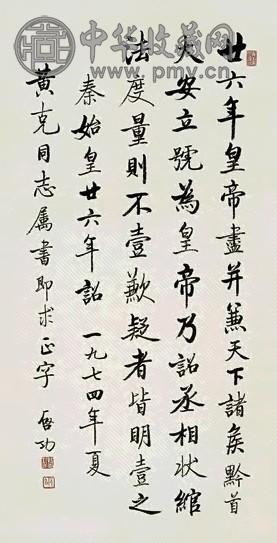 中华收藏网
www.pmv.cn
廿六年皇帝盡并兼天下諸矦黔首
大安立號為皇帝乃詔丞相狀綰
法度量則不壹歉疑者皆明壹之
秦始皇廿六年詔 一九七四年夏
黃克同志属書即求正字 啟功